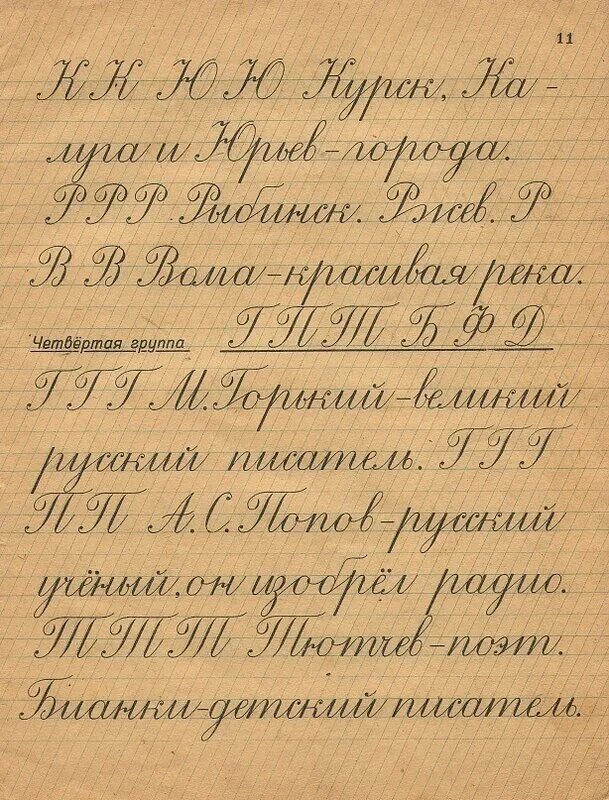 11
К К Ю Ю Курск, Ка-
луга и Юрьев-города.
Р Р Р Рыбинск. Ржев. Р
В В В Вома-красивая река.
Четвёртая группа Г П Т Б Ф Д
Г Г Г М. Горький-великий
русский писатель. Г Г Г
П П А. С. Попов-русский
учёный, он изобрёл радио.
Т Т Т Тютчев-поэт.
Бианки-детский писатель.